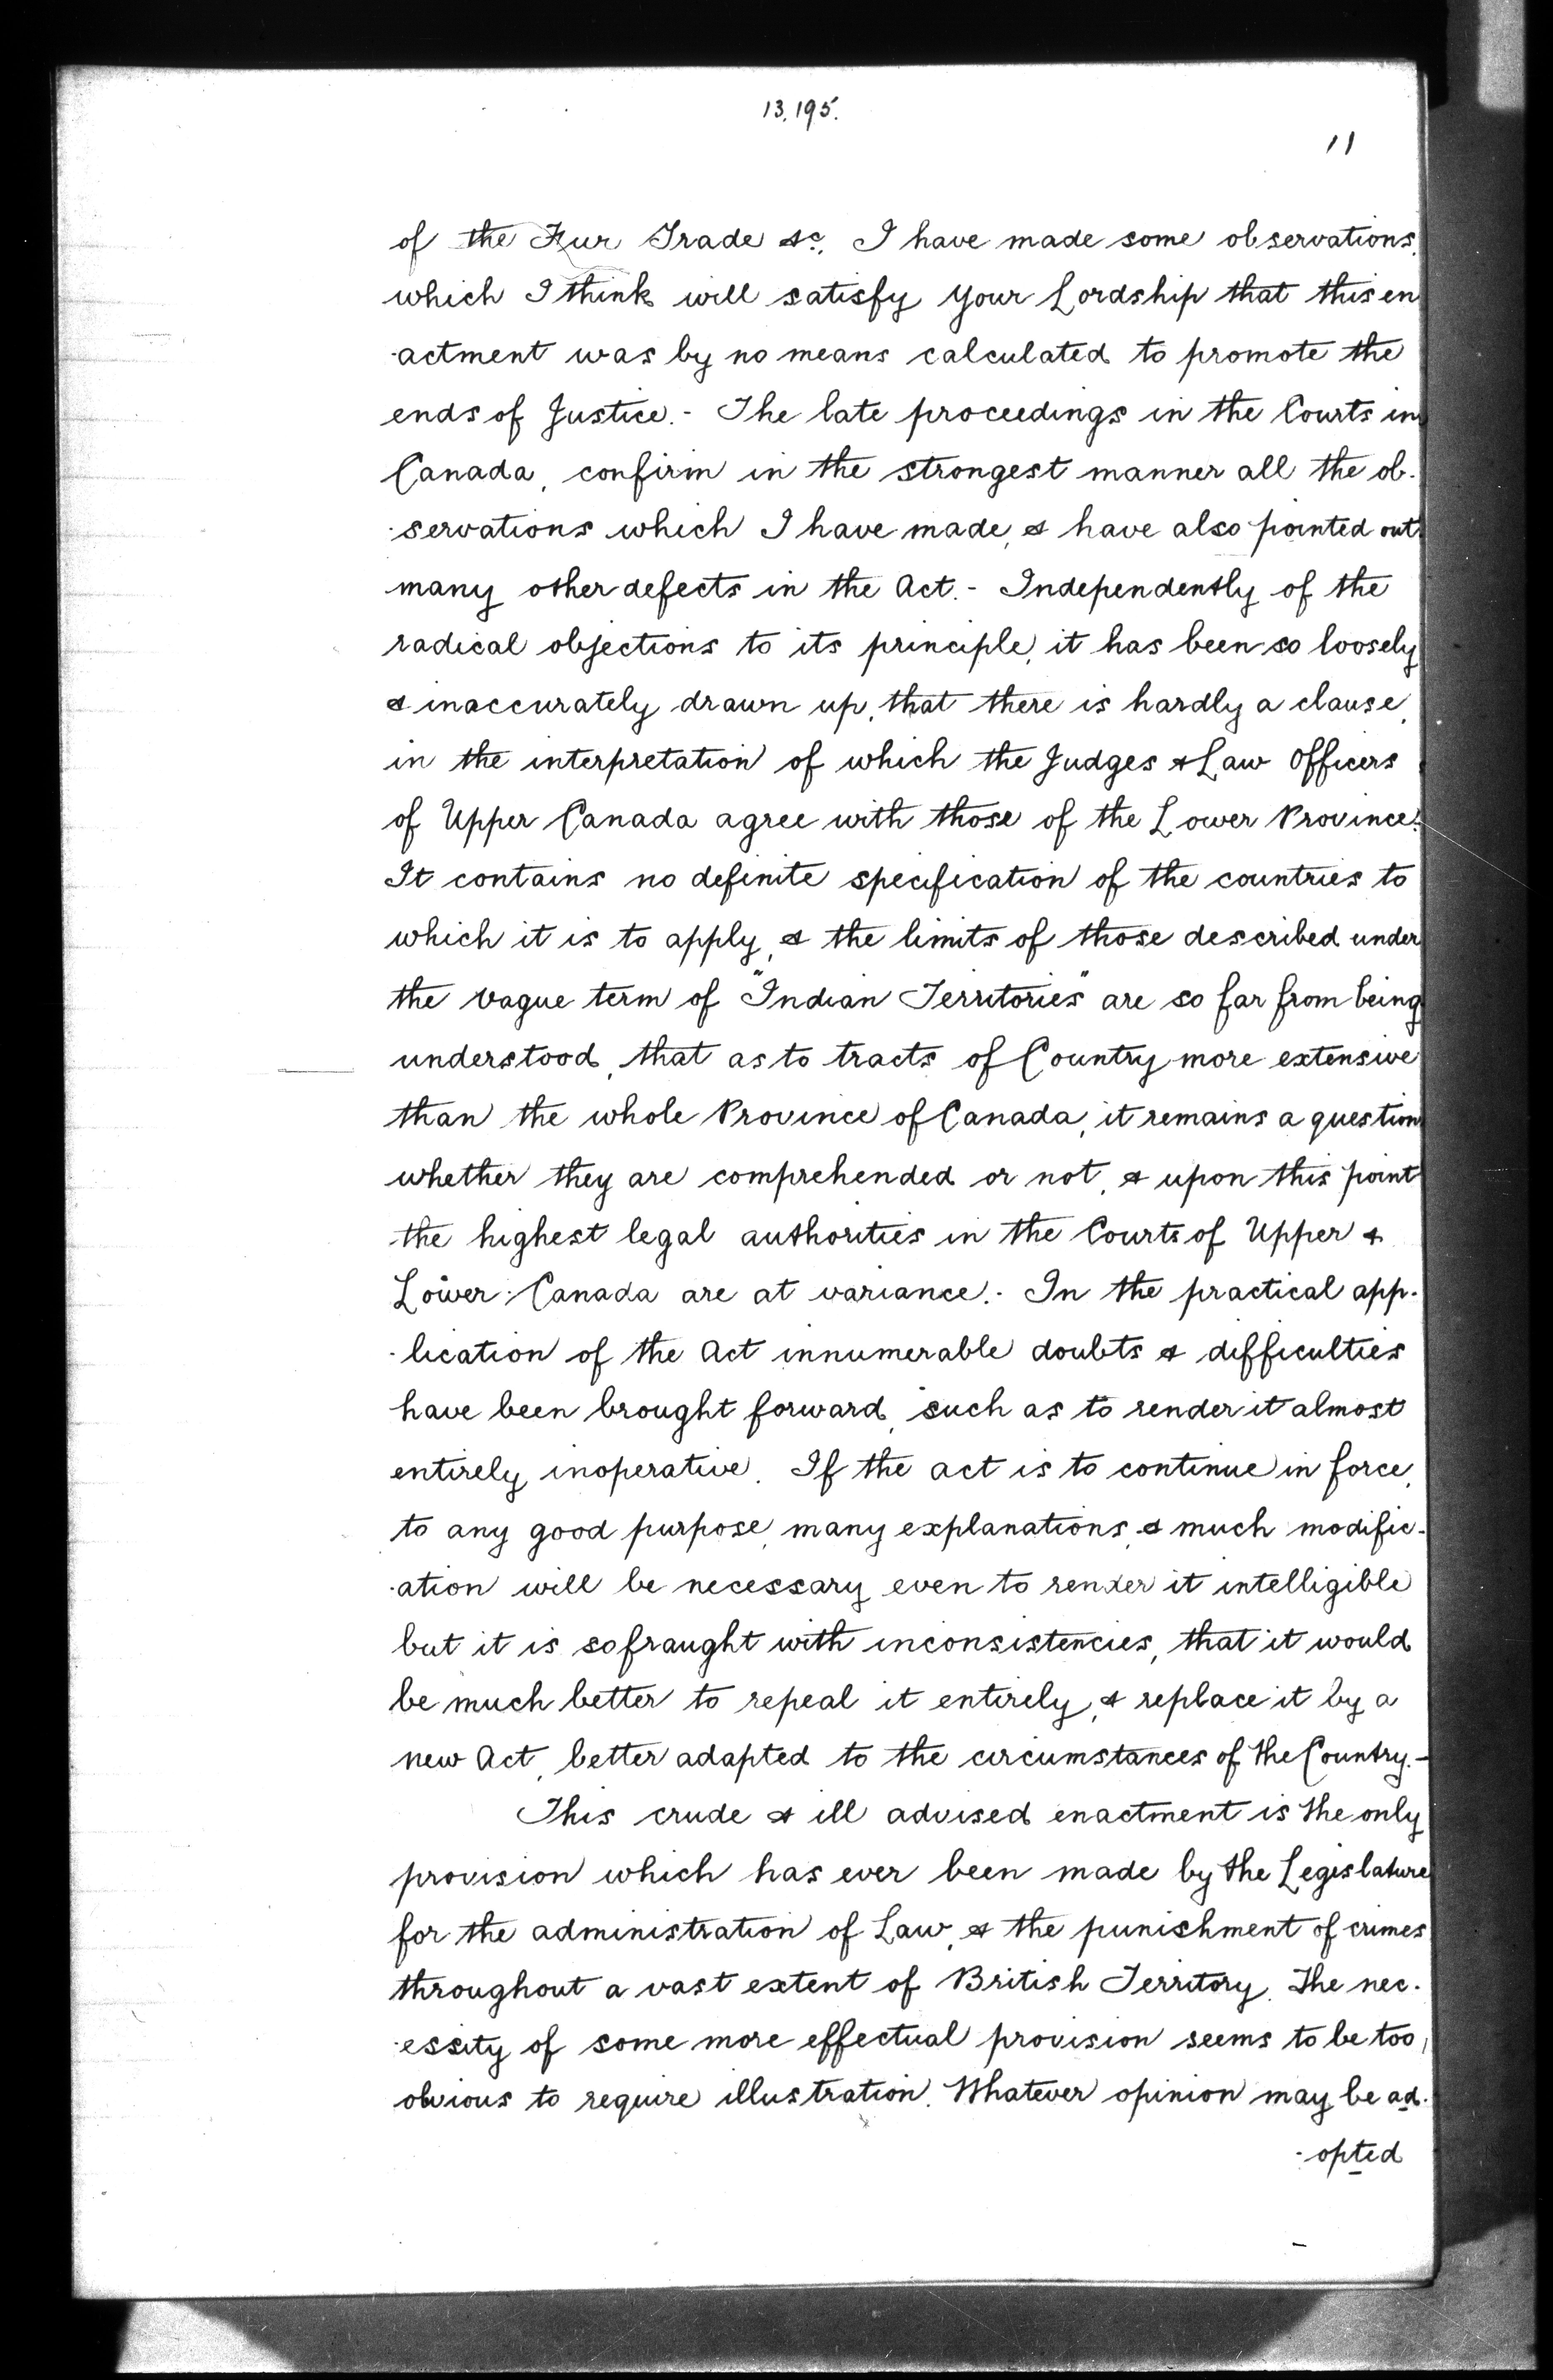 13,195.
11
of the Fur Trade &c. I have made some observations,
which I think will satisfy your Lordship that this en
-actment was by no means calculated to promote the
ends of Justice. - The late proceedings in the Courts in
Canada, confirm in the strongest manner all the ob-
-servations which I have made, & have also pointed out
many other defects in the Act. - Independently of the
radical objections to its principle, it has been so loosely
& inaccurately drawn up, that there is hardly a clause,
in the interpretation of which the Judges & Law Officers
of Upper Canada agree with those of the Lower Province.
It contains no definite specification of the countries to
which it is to apply, & the limits of those described under
the vague term of "Indian Territories" are so far from being
understood, that as to tracts of Country more extensive
than the whole Province of Canada, it remains a question
whether they are comprehended or not, & upon this point
the highest legal authorities in the Courts of Upper &
Lower Canada are at variance. - In the practical app-
-lication of the Act innumerable doubts & difficulties
have been brought forward, such as to render it almost
entirely inoperative. If the act is to continue in force,
to any good purpose, many explanations, & much modific-
-ation will be necessary even to render it intelligible
but it is so fraught with inconsistencies, that it would
be much better to repeal it entirely, & replace it by a
new Act, better adapted to the circumstances of the Country. -
This crude & ill advised enactment is the only
provision which has ever been made by the Legislature
for the administration of Law, & the punishment of crimes
throughout a vast extent of British Territory. The nec-
-essity of some more effectual provision seems to be too
obvious to require illustration. Whatever opinion may be ad-
-opted